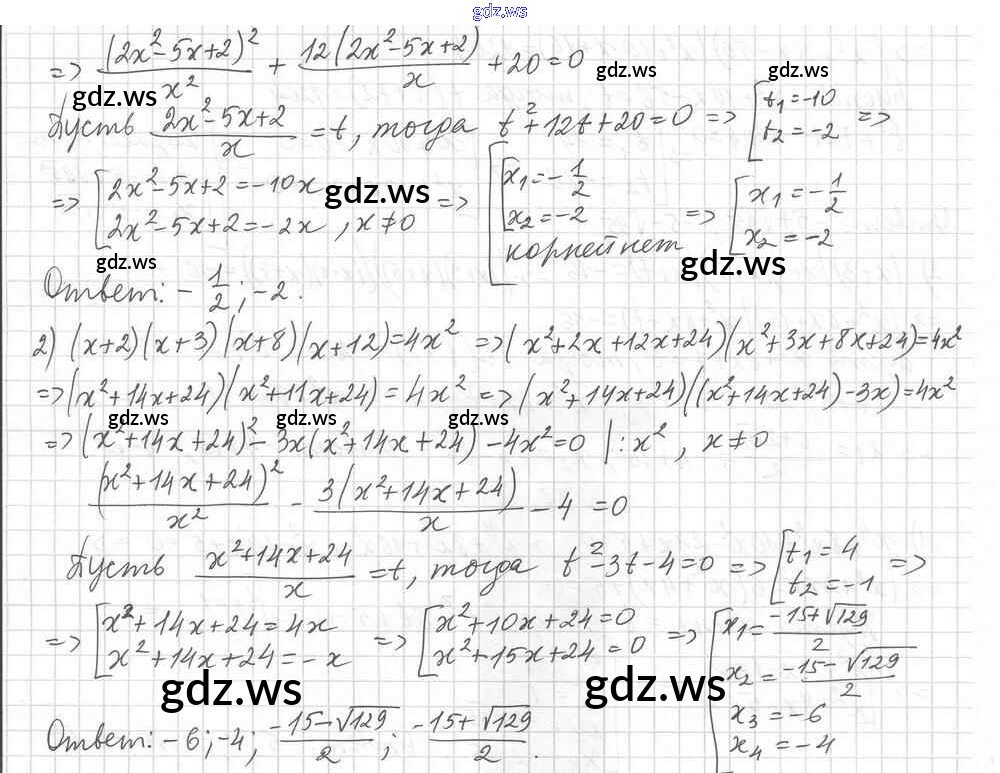 gdz.ws
=> (2x²-5x+2)²/x² + 12(2x²-5x+2)/x + 20=0
gdz.ws gdz.ws gdz.ws
Пусть (2x²-5x+2)/x = t, тогда t²+12t+20=0 => [t₁=-10 t₂=-2 =>
=> [2x²-5x+2=-10x 2x²-5x+2=-2x, x≠0 => [[x₁=-1/2 x₂=-2 корней нет => [x₁=-1/2 x₂=-2
gdz.ws
gdz.ws gdz.ws
Ответ: -1/2; -2.
2) (x+2)(x+3)(x+8)(x+12)=4x² =>(x²+2x+12x+24)(x²+3x+8x+24)=4x²
=>(x²+14x+24)(x²+11x+24)=4x² =>(x²+14x+24)((x²+14x+24)-3x)=4x²
gdz.ws gdz.ws gdz.ws
=>(x²+14x+24)²-3x(x²+14x+24)-4x²=0 |:x², x≠0
(x²+14x+24)²/x² - 3(x²+14x+24)/x - 4 =0
Пусть (x²+14x+24)/x = t, тогда t²-3t-4=0 => [t₁=4 t₂=-1 =>
=> [x²+14x+24=4x x²+14x+24=-x => [x²+10x+24=0 x²+15x+24=0 => [x₁=(-15+√129)/2 x₂=(-15-√129)/2 x₃=-6 x₄=-4
gdz.ws gdz.ws
Ответ: -6; -4; (-15-√129)/2; (-15+√129)/2.